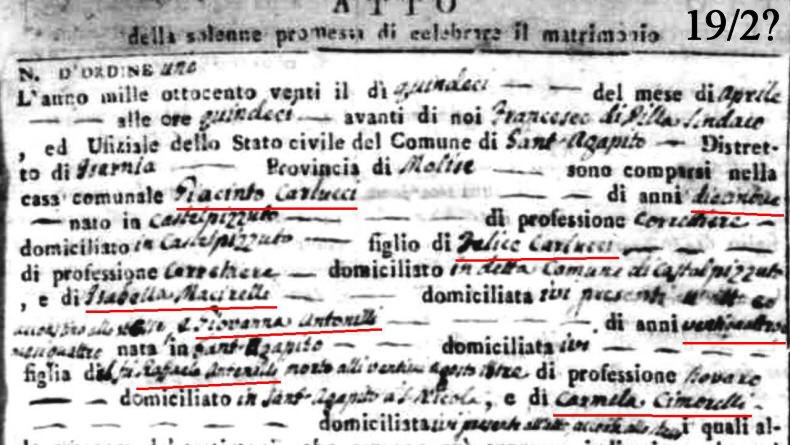 ATTO
della solenne promessa di celebrare il matrimonio
19/2?
N. D'ORDINE uno
L'anno mille ottocento venti il dì quindeci del mese di Aprile
alle ore quindeci avanti di noi Francesco di Pilla Sindaco
, ed Ufiziale dello Stato civile del Comune di Sant'Agapito Distret-
to di Isernia Provincia di Molise sono comparsi nella
casa comunale Giacinto Carlucci di anni
nato in Castelpizzuto di professione Correttere
domiciliato in Castelpizzuto figlio di Felice Carlucci
di professione Correttere domiciliato in detta Comune di Castelpizzuto
, e di Isabella domiciliata ivi presenti
e Giovanna Antonelli di anni
nata in Sant'Agapito domiciliata ivi
figlia del fu Raffaele Antonelli morto alli agosto di professione
domiciliato in Sant'Agapito a S. Nicola, e di Carmela Cimorelli
domiciliata ivi presente i quali al-